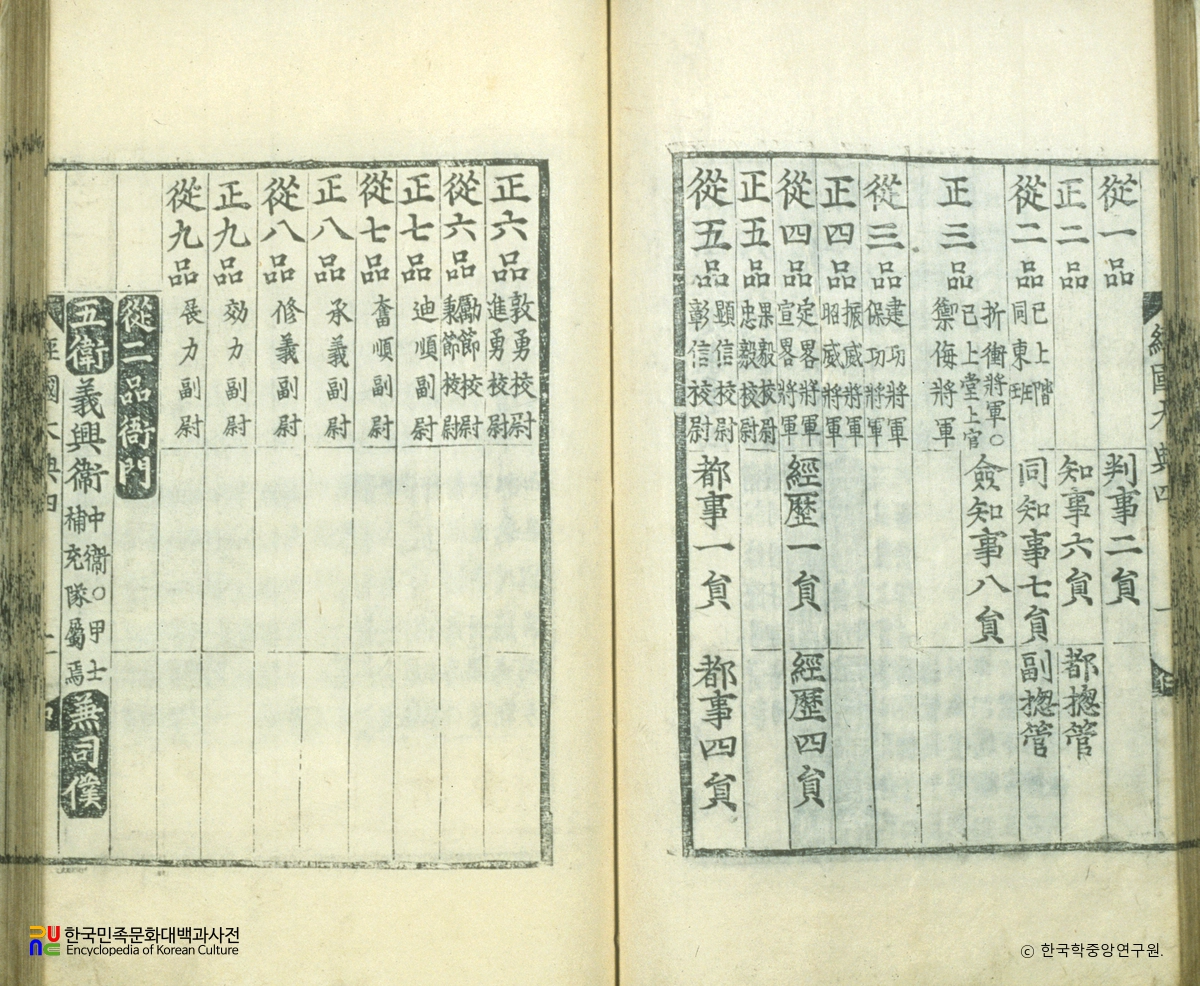 經國大典四
從一品 判事二貟
正二品 知事六貟 都摠管
從二品 已上階同東班 同知事七貟 副摠管
正三品 折衝將軍○已上堂上官 禦侮將軍 僉知事八貟
從三品 建功將軍 保功將軍
正四品 振威將軍 昭威將軍
從四品 定畧將軍 宣畧將軍 經歷一貟 經歷四貟
正五品 果毅校尉 忠毅校尉
從五品 顯信校尉 彰信校尉 都事一貟 都事四貟
正六品 敦勇校尉 進勇校尉
從六品 勵節校尉 秉節校尉
正七品 迪順副尉
從七品 奮順副尉
正八品 承義副尉
從八品 修義副尉
正九品 効力副尉
從九品 展力副尉
從二品衙門
五衛 義興衛 中衛○甲士補充隊屬焉 兼司僕
經國大典四
한국민족문화대백과사전
Encyclopedia of Korean Culture
ⓒ 한국학중앙연구원.